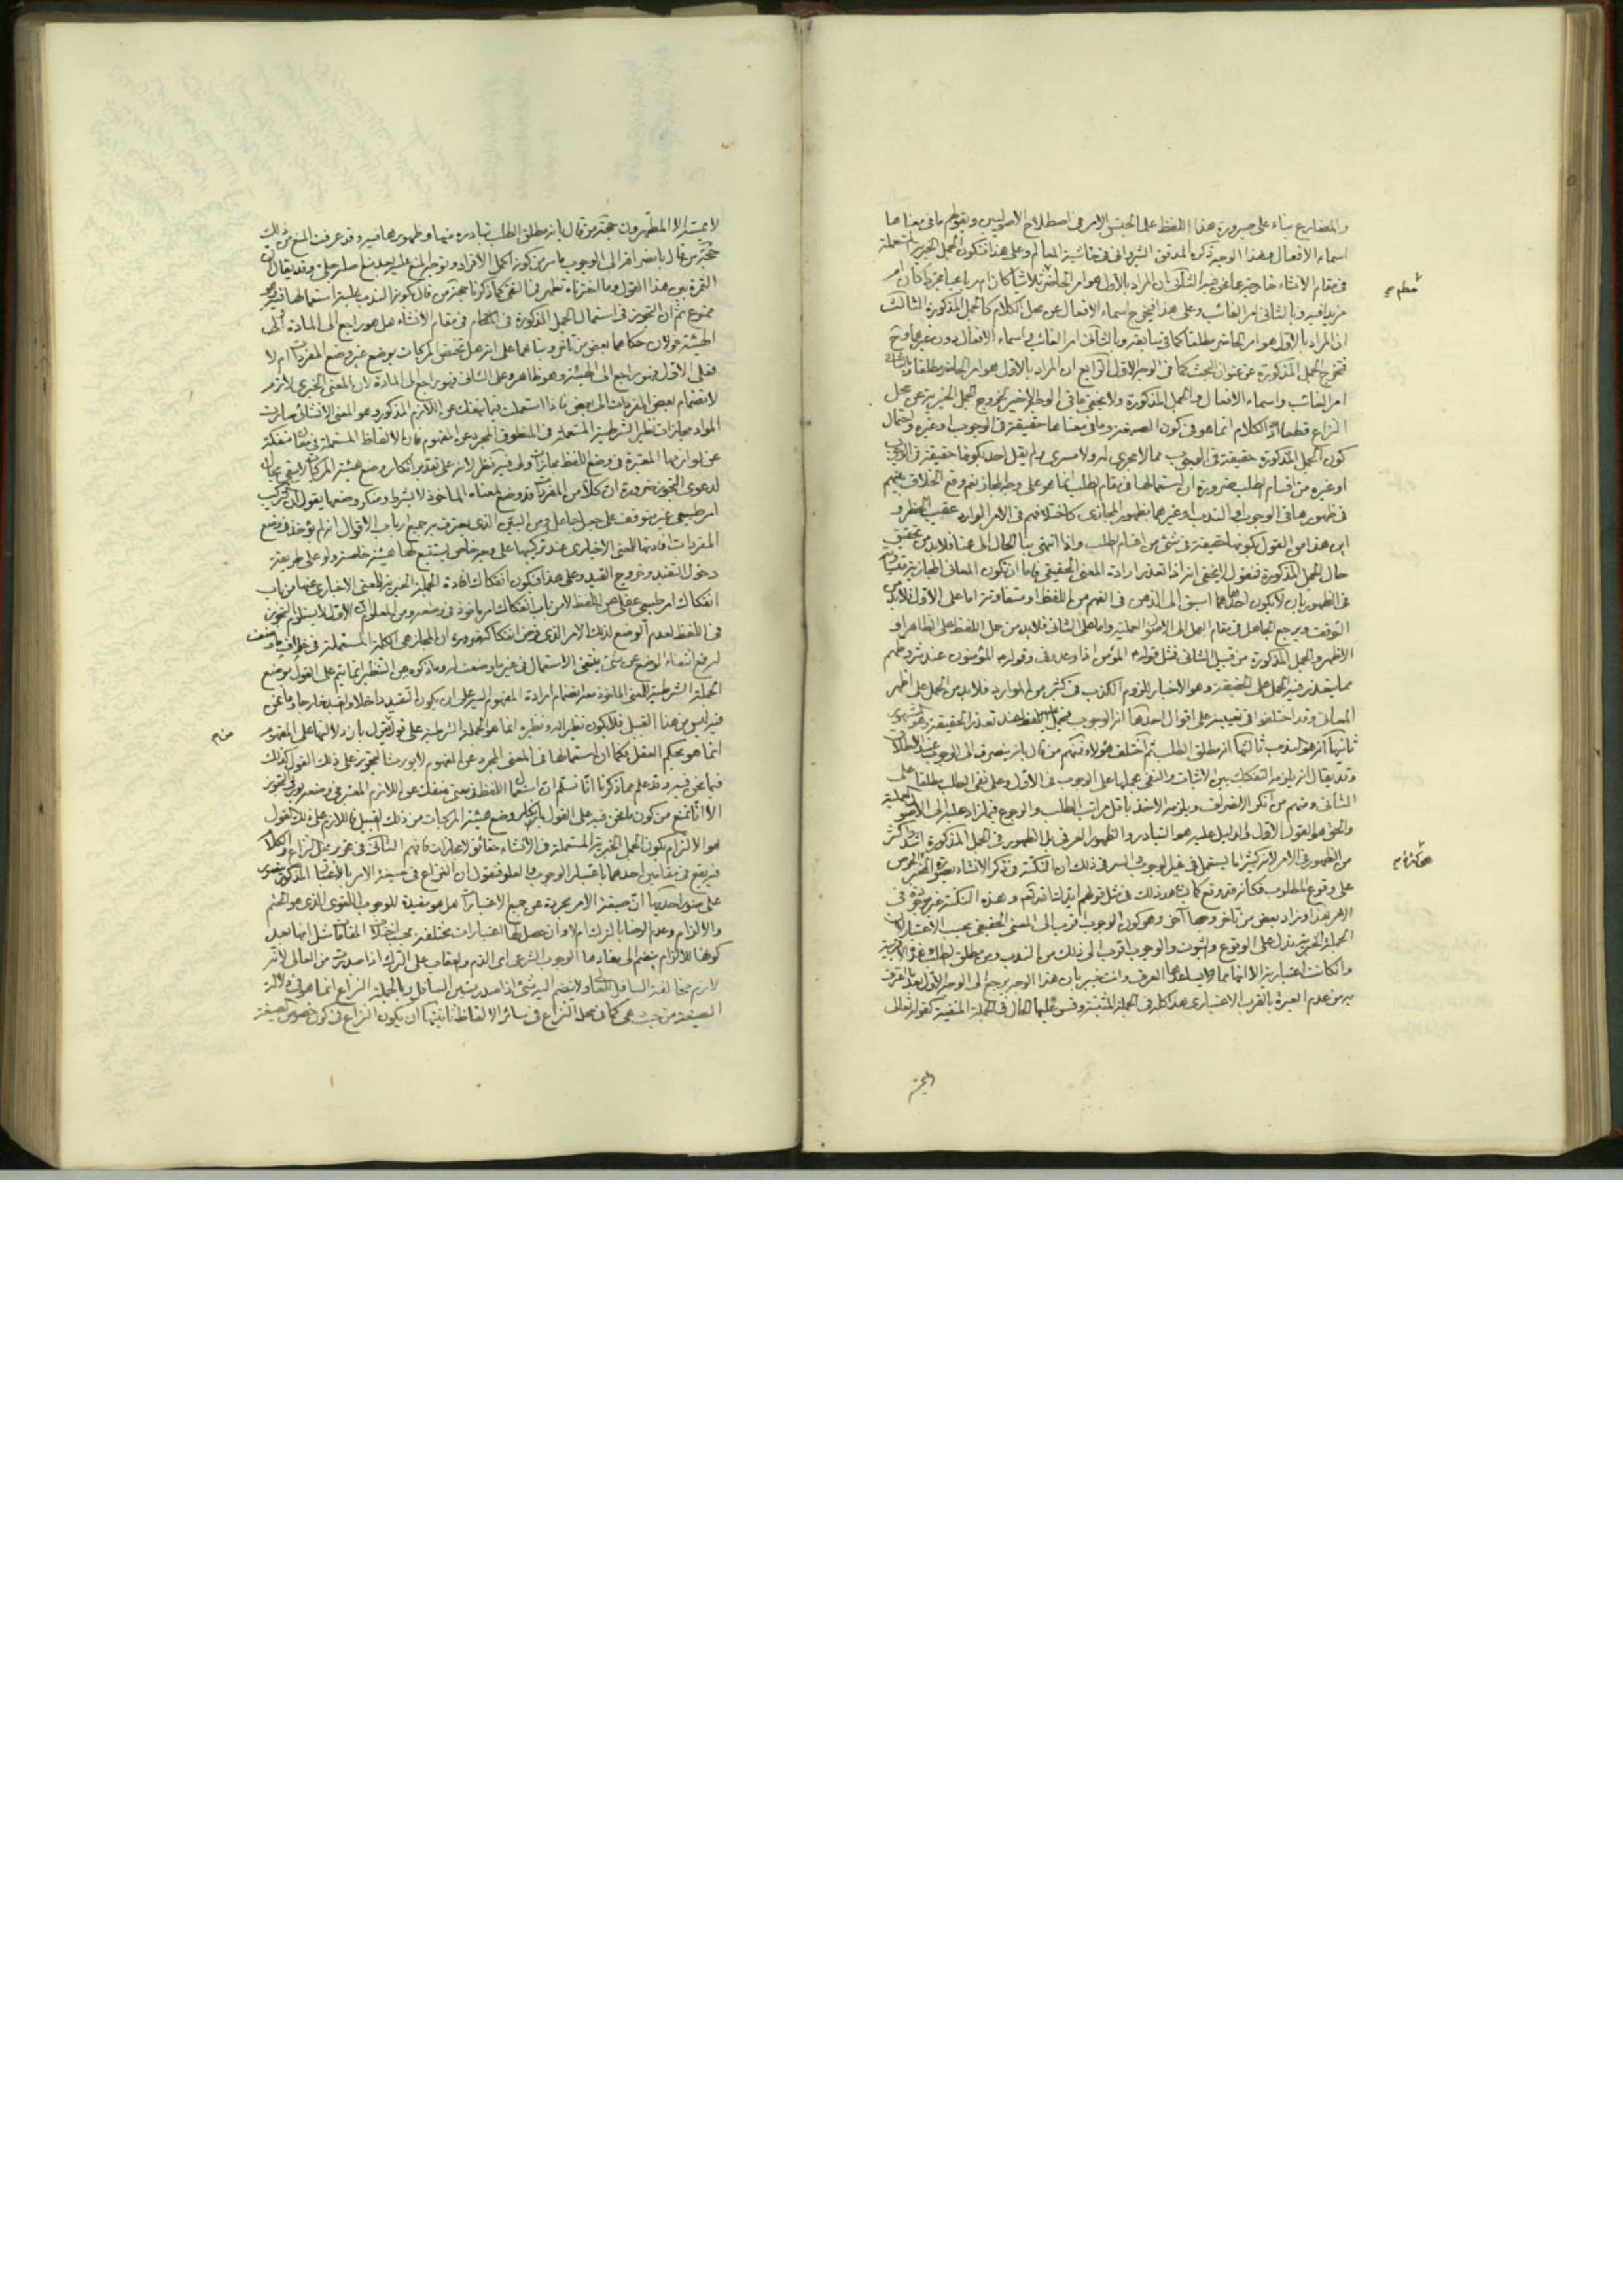 والمضارع بناء على صيرورة هذا اللفظ على الجنس الامر في اصطلاح الاصوليين وبقولهم ما في معناها
اسماء الافعال وهذا الوجه ذكره المدقق الشيرواني في حاشية المعالم وعلى هذا فتكون الجمل الخبرية المستعملة
في مقام الانشاء خارجة عما نحن فيه الثاني ان المراد بالاول هو امر الحاضر ثلاثيا كان ام رباعيا مجردا كان ام
مزيدا فيه وبالثاني امر الغائب وعلى هذا فيخرج اسماء الافعال عن محل الكلام كالجمل المذكورة الثالث
ان المراد بالاول هو امر الحاضر مطلقا كما في سابقه وبالثاني امر الغائب واسماء الافعال دون غيرها وح
فتخرج الجمل المذكورة عن عنوان البحث كما في الوجه الاول الرابع ان المراد بالاول هو امر الحاضر مطلقا وبالثاني
امر الغائب واسماء الافعال والجمل المذكورة ولا يخفى ما في الوجه الاخير لخروج الجمل الخبرية عن محل
النزاع قطعا اذ الكلام انما هو في كون الصيغة وما في معناها حقيقة في الوجوب او غيره واحتمال
كون الجمل المذكورة حقيقة في الوجوب مما لا مجرى له ولا مسرى ولم يقل احد بكونها حقيقة في الوجوب
او غيره من اقسام الطلب ضرورة ان استعمالها في مقام الطلب انما هو على وجه المجاز نعم وقع الخلاف بينهم
في ظهورها في الوجوب او الندب او غيرهما بظهور المجازي كاختلافهم في الامر الوارد عقيب الحظر و
اين هذا من القول بكونها حقيقة في شئ من اقسام الطلب واذا انتهى بنا الحال الى هنا فلابد من تحقيق
حال الجمل المذكورة فنقول لا يخفى انه اذا تعذر ارادة المعنى الحقيقي فاما ان تكون المعاني المجازية متساوية
في الظهور بان لا يكون احدها اسبق الى الذهن في الفهم من اللفظ او متفاوتة اما على الاول فلابد من
التوقف ويرجع الجاهل في مقام العمل الى الاصول العملية واما على الثاني فلابد من حمل اللفظ على الظاهر او
الاظهر والجمل المذكورة من قبيل الثاني فمثل قوله المؤمن اذا وعد وفى وقوله المؤمنون عند شروطهم
مما يتعذر فيه الحمل على الحقيقة وهو الاخبار للزوم الكذب في كثير من الموارد فلابد من الحمل على اظهر
المعاني وقد اختلفوا في تعيينه على اقوال احدها انه الوجوب فيحمل عليه اللفظ عند تعذر الحقيقة وهو المشهور
ثانيها انه هو الندب ثالثها انه مطلق الطلب ثم اختلف هؤلاء فمنهم من قال بانه ينصرف الى الوجوب عند الاطلاق
وقد يقال انه يلزمه التفكيك بين الاثبات والنفي بحملها على الوجوب في الاول وعلى نفي الطلب مطلقا على
الثاني ومنهم من انكر الانصراف ويلزمه الاخذ باقل مراتب الطلب والرجوع فيما زاد عليه الى الاصول العملية
والحق هو القول الاول والدليل عليه هو التبادر والظهور العرفي بل الظهور في الجمل المذكورة اشد واكثر
من الظهور في الامر لانه كثيرا ما يستعمل في غير الوجوب والسر في ذلك ان النكتة في ذكر الانشاء بصورة الخبر الحرص
على وقوع المطلوب فكانه قد وقع كما يشاهد ذلك في مثل قولهم وهذه النكتة غير موجودة في
الامر هذا وزاد بعض من تاخر وجها آخر وهو كون الوجوب اقرب الى المعنى الحقيقي بحسب الاعتبار لان
الجملة الخبرية تدل على الوقوع والثبوت والوجوب اقرب الى ذلك من الندب ومن مطلق الطلب
وان كانت اعتبارية الا انها مما يساعدها العرف وانت خبير بان هذا الوجه يرجع الى الوجه الاول بعد
من عدم العبرة بالقرب الاعتباري هذا كله في الجملة المثبتة وقس عليها الحال في الجملة المنفية كقوله تعالى
لا يمسه الا المطهرون حجة من قال بانه مطلق الطلب تبادره منها وظهورها فيه وقد عرفت المنع من ذلك
حجة من قال بانصرافه الى الوجوب ما مر من كونه اكمل الافراد وتوجه المنع عليه بعد تسليمه جلي وقد يقال ان
الثمرة بين هذا القول وما اخترناه تظهر في النفي كما ذكرنا حجة من قال بكونها للندب غلبة استعمالها فيه وهو
ممنوع ثم ان التجوز في استعمال الجمل المذكورة في الكلام في مقام الانشاء هل هو راجع الى المادة او الى
الهيئة قولان حكاهما بعض من تاخر وبناهما على انه هل تختص المركبات بوضع غير وضع المفردات ام لا
فعلى الاول فهو راجع الى الهيئة وهو ظاهر وعلى الثاني فهو راجع الى المادة لان المعنى الخبري لازم
لانضمام بعض المفردات الى بعض فاذا استعملت فيما ينفك عن اللازم المذكور وهو المعنى الانشائي صارت
المواد مجازات نظير الشرطية المستعملة في المنطوق المجرد عن المفهوم فان الالفاظ المستعملة في معان منفكة
عن لوازمها المعتبرة في وضع اللفظ مجازات ولي فيه نظر لانه على تقدير انكار وضع هيئة المركبات لا يبقى مجال
لدعوى التجوز ضرورة ان كلا من المفردات قد وضع لمعناه الماخوذ لا بشرط ومنكر وضعها يقول ان التركيب
امر طبيعي غير متوقف على جعل جاعل ومن البين الذي يعترف به جميع ارباب الاقوال انه لم يؤخذ في وضع
المفردات افادتها للمعنى الاخباري عند تركيبها على وجه خاص يستتبع لها هيئة خاصة ولو على طريقة
دخول التقييد وخروج القيد وعلى هذا فيكون انفكاك افادة الجملة الخبرية للمعنى الاخباري عنها من باب
انفكاك امر طبيعي عقلي عن اللفظ لا من باب انفكاك امر ماخوذ في وضعه ومن المعلوم ان الاول لا يستلزم التجوز
في اللفظ لعدم الوضع لذلك الامر الذي فرض انفكاكه ضرورة ان المجاز هي الكلمة المستعملة في خلاف ما وضعت
له فمع انتفاء الوضع عن شئ ينتفي الاستعمال في غير ما وضعت له وما ذكره من التنظير انما يتم على القول بوضع
الجملة الشرطية للمعنى الماخوذ معه انضمام ارادة المفهوم اليه على ان يكون التقييد داخلا والقيد خارجا وما نحن
فيه ليس من هذا القبيل فلا يكون نظيرا له ونظيره انما هو الجملة الشرطية على قول من يقول بان دلالتها على المفهوم
انما هو بحكم العقل فكما ان استعمالها في المعنى المجرد عن المفهوم لا يورث التجوز على ذلك القول كذلك
فيما نحن فيه وقد علم مما ذكرنا انا نسلم ان استعمال اللفظ في معنى منفك عن اللازم المعتبر في وضعه يورث التجوز
الا انا نمنع من كون ما نحن فيه على القول بانكار وضع هيئة المركبات من ذلك القبيل فاللازم على ذلك القول
هو الالتزام بكون الجمل الخبرية المستعملة في الانشاء حقائق لا مجازات فافهم الثاني في تحرير محل النزاع والكلام
فيه يقع في مقامين احدهما باعتبار الوجوب والعلو فنقول ان النزاع في صيغة الامر بالاعتبار المذكور يتصور
على صور احدها ان صيغة الامر مجردة عن جميع الاعتبارات هل هو مفيدة للوجوب اللغوي الذي هو الحتم
والالزام وعدم الرضا بالترك ام لا وان حصل لها اعتبارات مختلفة بحسب اختلاف المقامات مثل انها بعد
كونها للالزام ينضم الى مفادها الوجوب الشرعي اي الذم والعقاب على الترك اذا صدرت من العالي لانه
لازم مخالفة السافل للعالي ولا ينضم اليه شئ اذا صدرت من السافل وبالجملة النزاع انما هو في دلالة
الصيغة من حيث هي كما في محل النزاع في سائر الالفاظ ثانيتها ان يكون النزاع في كون خصوص الصيغة